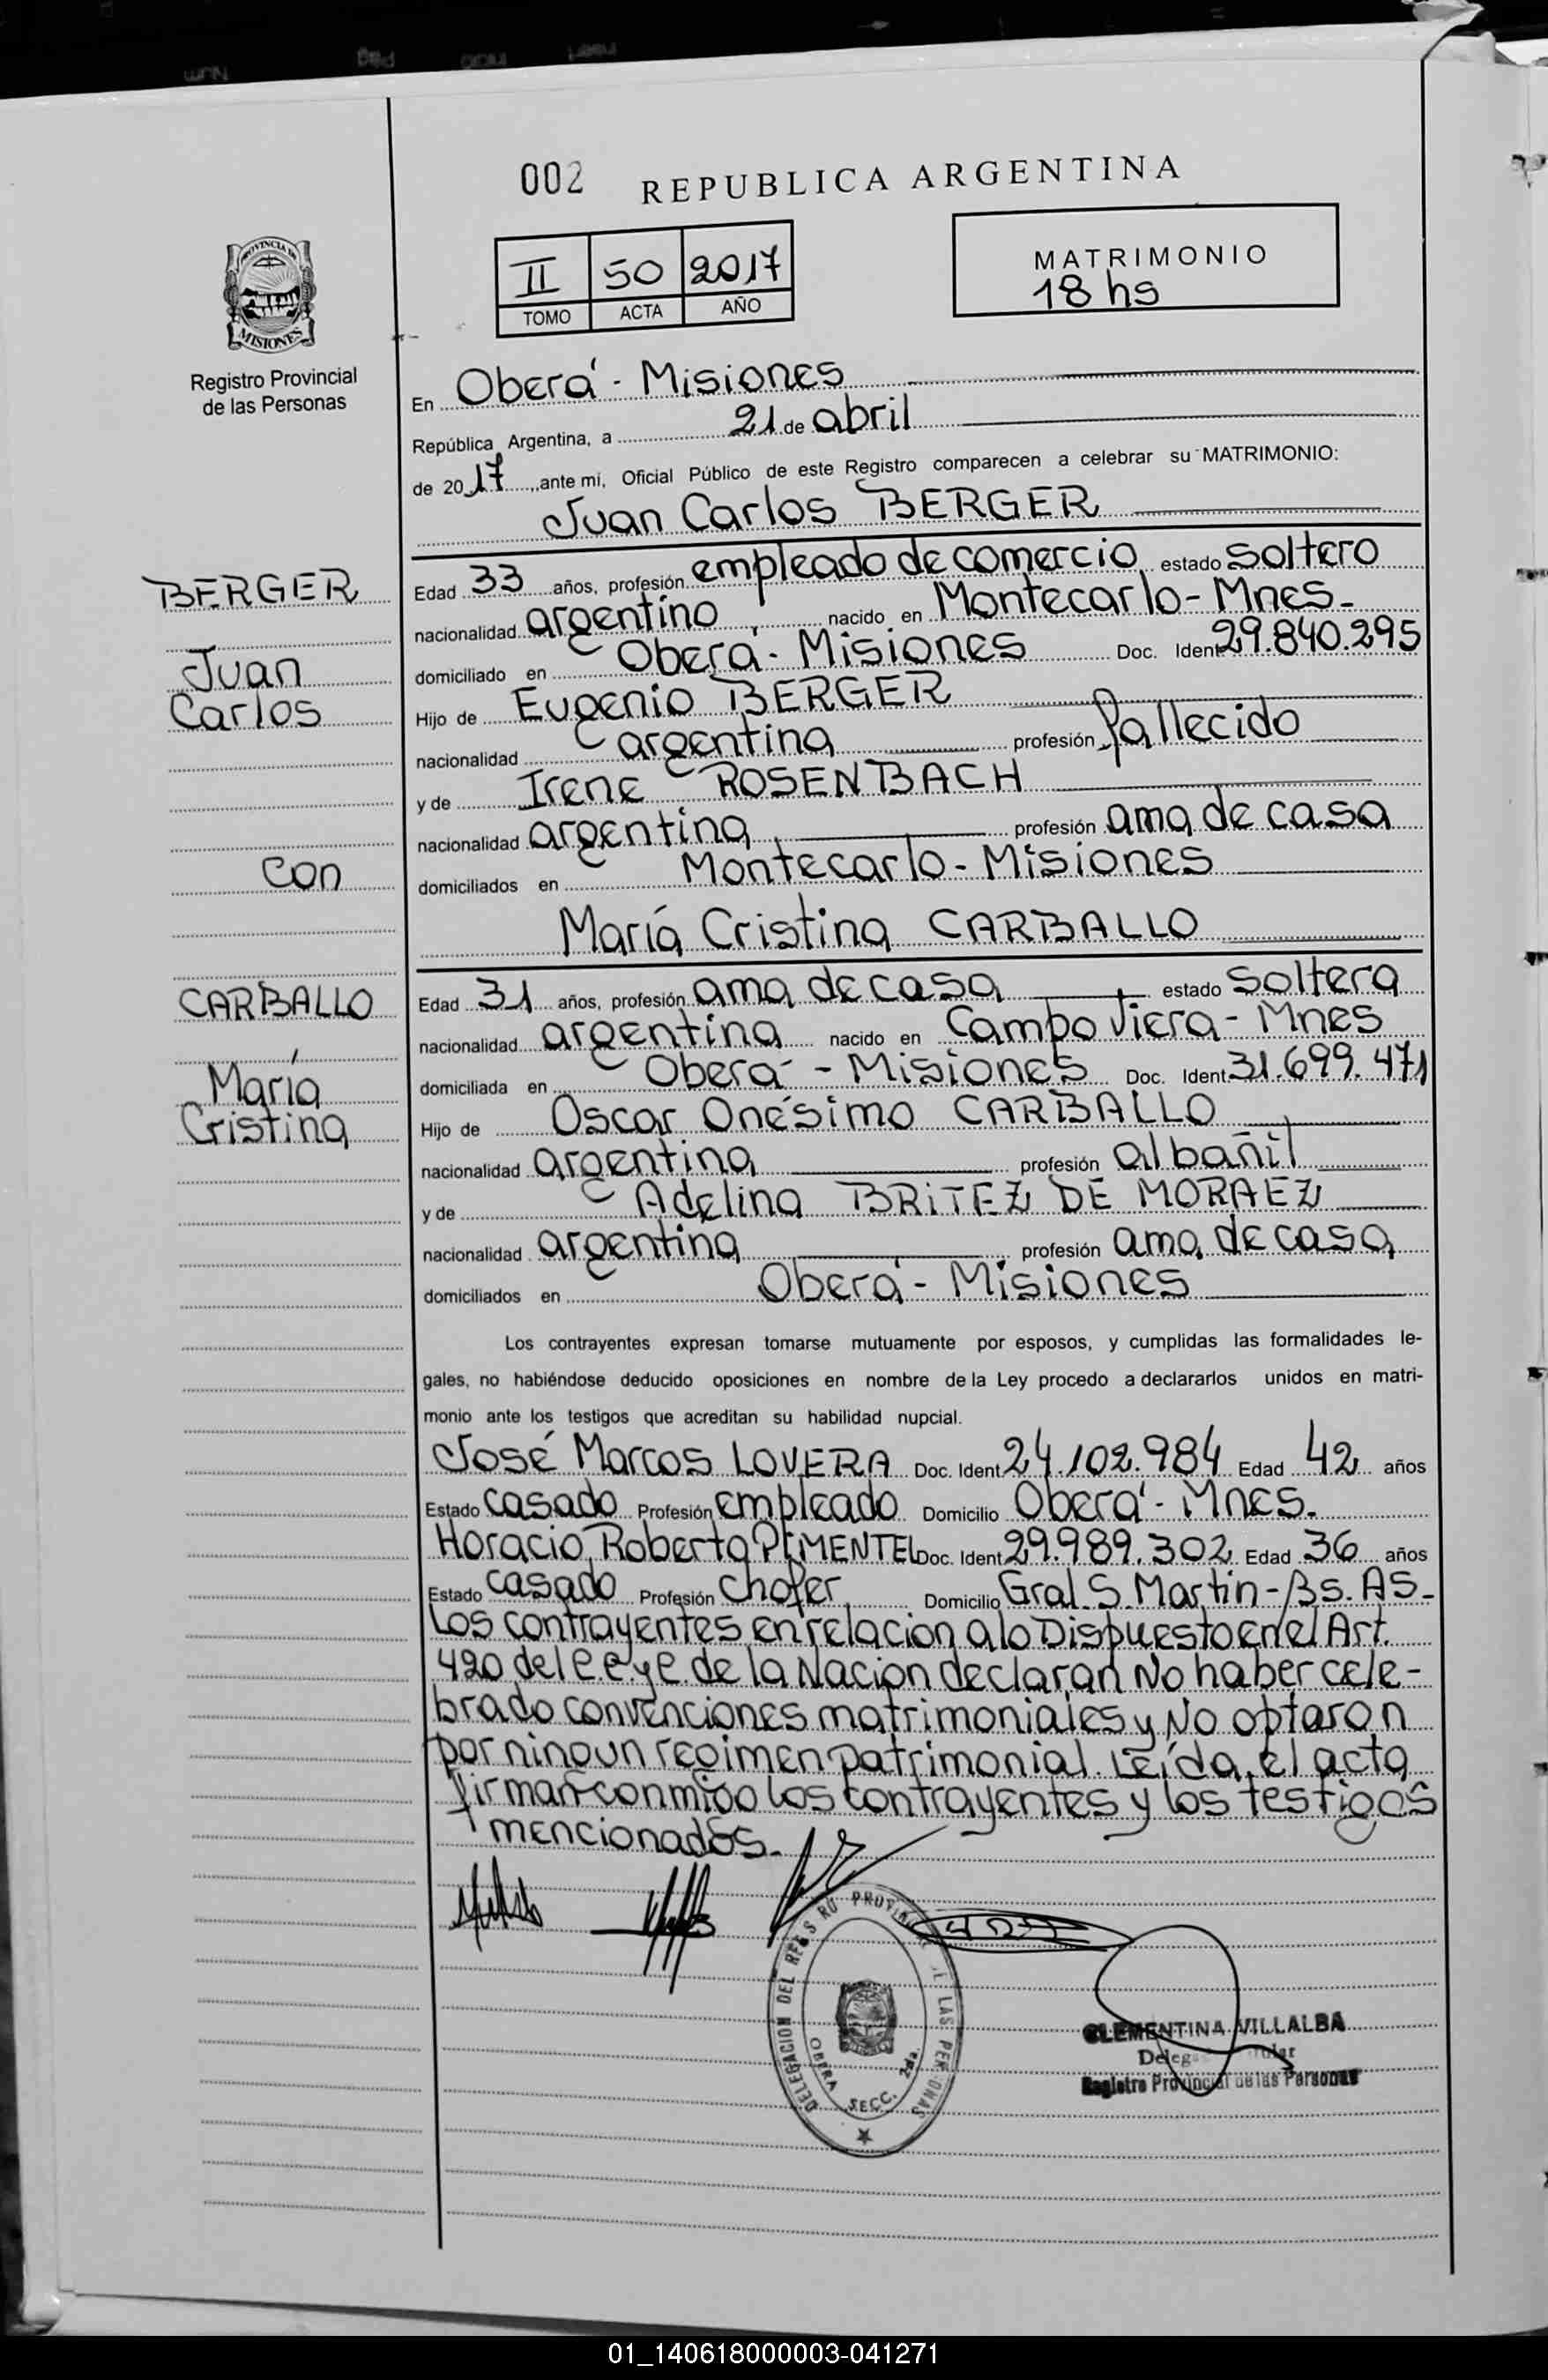 002 REPUBLICA ARGENTINA
II 50 2017
TOMO ACTA AÑO
MATRIMONIO
18 hs
PROVINCIA DE
MISIONES
Registro Provincial
de las Personas
En Oberá - Misiones
República Argentina, a 21 de abril
de 2017, ante mí, Oficial Público de este Registro comparecen a celebrar su MATRIMONIO:
Juan Carlos BERGER
BERGER
Juan
Carlos
con
CARBALLO
María
Cristina
Edad 33 años, profesión empleado de comercio estado soltero
nacionalidad argentino nacido en Montecarlo - Mnes.
domiciliado en Oberá - Misiones Doc. Ident 29.840.295
Hijo de Eugenio BERGER
nacionalidad argentina profesión fallecido
y de Irene ROSENBACH
nacionalidad argentina profesión ama de casa
domiciliados en Montecarlo - Misiones
María Cristina CARBALLO
Edad 31 años, profesión ama de casa estado soltera
nacionalidad argentina nacido en Campo Viera - Mnes
domiciliada en Oberá - Misiones Doc. Ident 31.699.471
Hijo de Oscar Onésimo CARBALLO
nacionalidad argentina profesión albañil
y de Adelina BRITEZ DE MORAEZ
nacionalidad argentina profesión ama de casa
domiciliados en Oberá - Misiones
Los contrayentes expresan tomarse mutuamente por esposos, y cumplidas las formalidades le-
gales, no habiéndose deducido oposiciones en nombre de la Ley procedo a declararlos unidos en matri-
monio ante los testigos que acreditan su habilidad nupcial.
José Marcos LOVERA Doc. Ident 24.102.984 Edad 42 años
Estado casado Profesión empleado Domicilio Oberá - Mnes.
Horacio Roberto PIMENTEL Doc. Ident 29.989.302 Edad 36 años
Estado casado Profesión chofer Domicilio Gral. S. Martin - Bs. AS -
Los contrayentes en relacion a lo Dispuesto en el Art.
420 del C.C. y C. de la Nacion declaran No haber cele-
brado convenciones matrimoniales y No optaron
por ningun regimen patrimonial. Leída el acta
firman conmigo los contrayentes y los testigos
mencionados.-
DELEGACION DEL REGISTRO PROVINCIAL DE LAS PERSONAS
OBERA SECC. 2da.
CLEMENTINA VILLALBA
Delegada Titular
Registro Provincial de las Personas
01_140618000003-041271